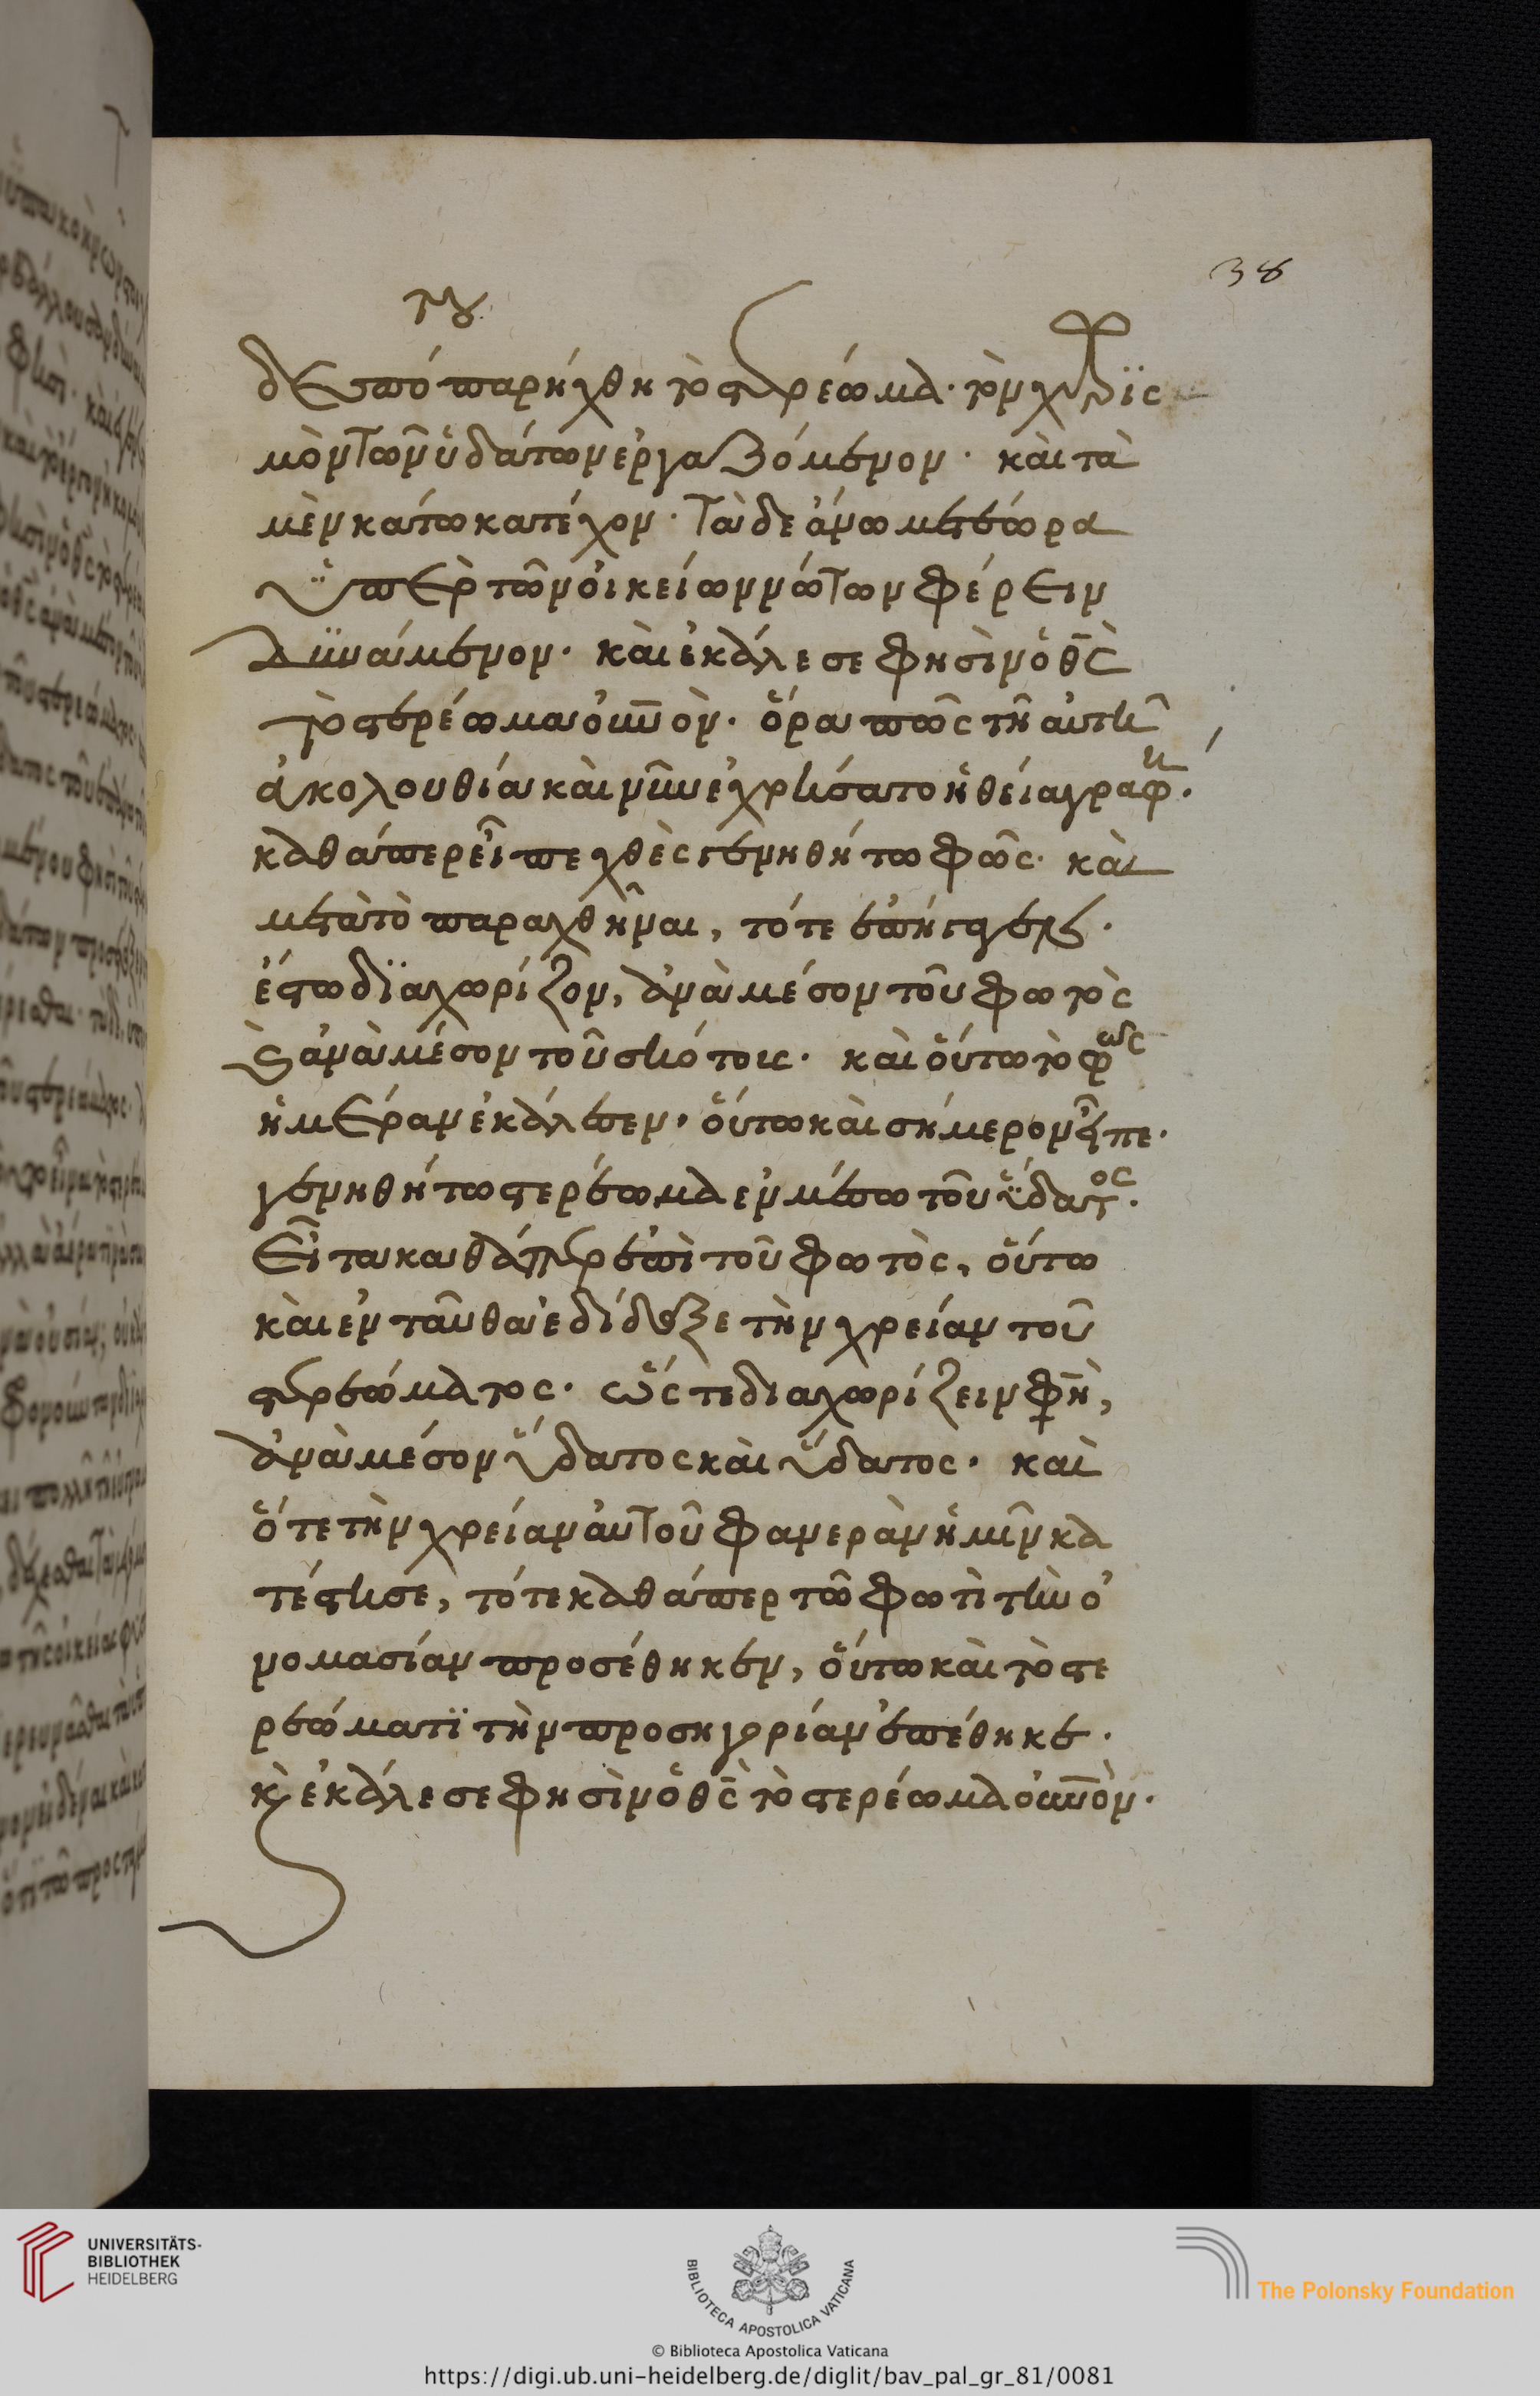 38
του
δεσπό παρήχθη τὸ στερέωμα· τὸν χωρϊσ
μὸν τῶν ὑδάτων ἐργαζόμενον· καὶ τὰ
μὲν κάτω κατέχον· τὰ δε ἄνω μετέωρα
ὕπὲρ τῶν οἰκείων νώτων φέρειν
δϋνάμενον· καὶ ἐκάλεσε φησὶν ὁ θς
τὸ στερέωμα οὐνὸν· ὅρα πῶς τῇ αὐτῇ
ἀκολουθία καὶ νῦν ἐχρήσατο ἡ θεία γραφή·
καθάπερ εἶπε χθὲς γενηθήτω φῶς· καὶ
μετὰ τὸ παραχθῆναι, τότε ἐπήγαγεν·
ἔστω δϊαχωρίζον, ἀνὰ μέσον τοῦ φωτὸς
καὶ ἀνὰ μέσον τοῦ σκότους· καὶ οὕτω τὸ φῶς
ἡμέραν ἐκάλεσεν· οὕτω καὶ σήμερον εἶπε·
γενηθήτω στερέωμα ἐν μέσω τοῦ ὕδατος·
Εἶτα καθάπερ ἐπὶ τοῦ φωτὸς, οὕτω
καὶ ἐν ταῦθα ἐδίδαξε τὴν χρείαν τοῦ
στερεώματος· ὥς τε διαχωρίζειν φη,
ἀνὰ μέσον ὕδατος καὶ ὕδατος· καὶ
ὅτε τὴν χρείαν αὐτοῦ φανερὰν ἡμῖν κα
τέστησε, τότε καθάπερ τῶ φωτὶ τὴν ὀ
νομασίαν προσέθηκεν, οὕτω καὶ τὸ στε
ρεώματϊ τὴν προσηγορίαν ἐπέθηκε·
κὲ ἐκάλεσε φησὶν ὁ θς τὸ στερέωμα οὐνὸν·
UNIVERSITÄTS-
BIBLIOTHEK
HEIDELBERG
BIBLIOTECA APOSTOLICA VATICANA
The Polonsky Foundation
© Biblioteca Apostolica Vaticana
https://digi.ub.uni-heidelberg.de/diglit/bav_pal_gr_81/0081